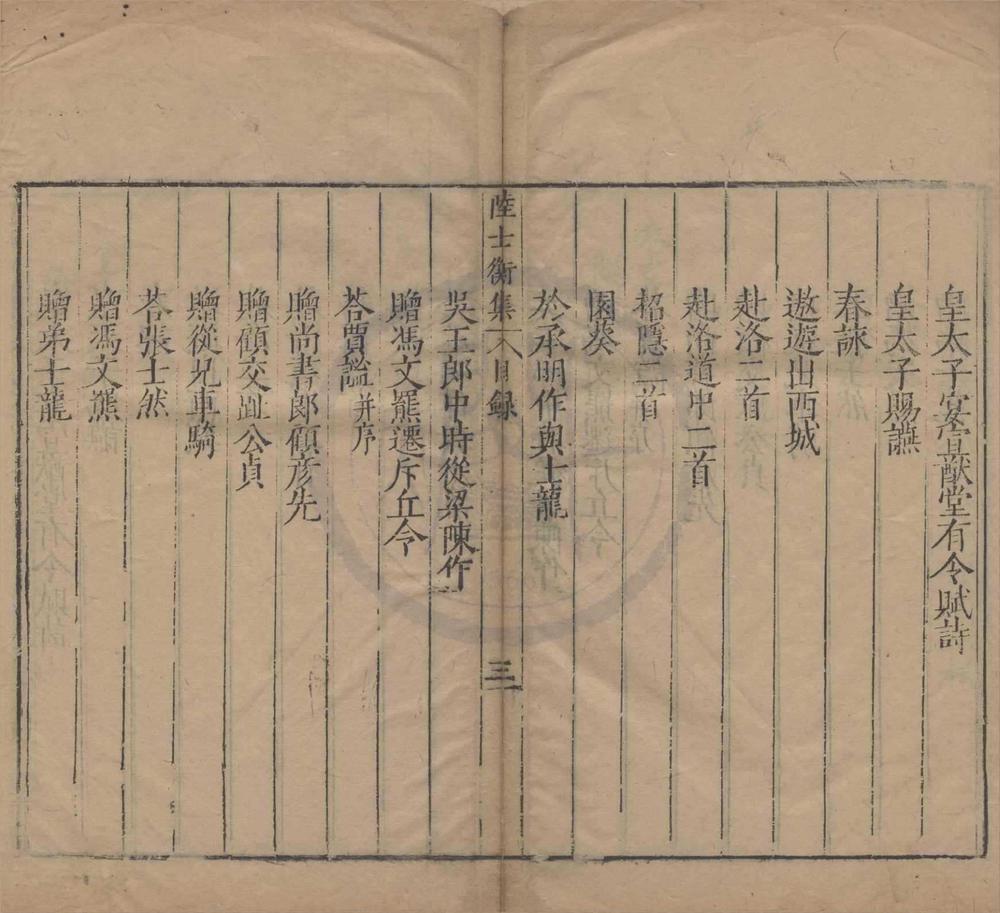 皇太子宴宣猷堂有令賦詩
皇太子賜讌
春詠
遨遊出西城
赴洛二首
赴洛道中二首
招隱二首
園葵
於承明作與士龍
陸士衡集 目錄 三
吳王郎中時從梁陳作
贈馮文羆遷斥丘令
荅賈謐并序
贈尚書郎顧彥先
贈顧交趾公貞
贈從兄車騎
荅張士然
贈馮文羆
贈弟士龍